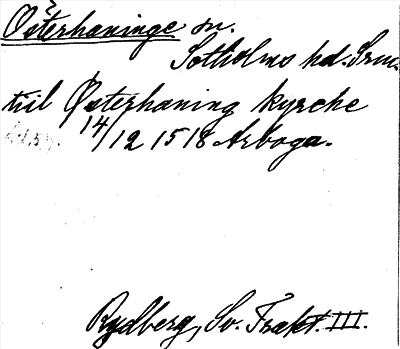 Österhaninge sn.
Sotholms hd. Srm.
tiil Østerhaning kyrche
14/12 1518 Arboga.
Rydberg, Sv. Trakt. III.